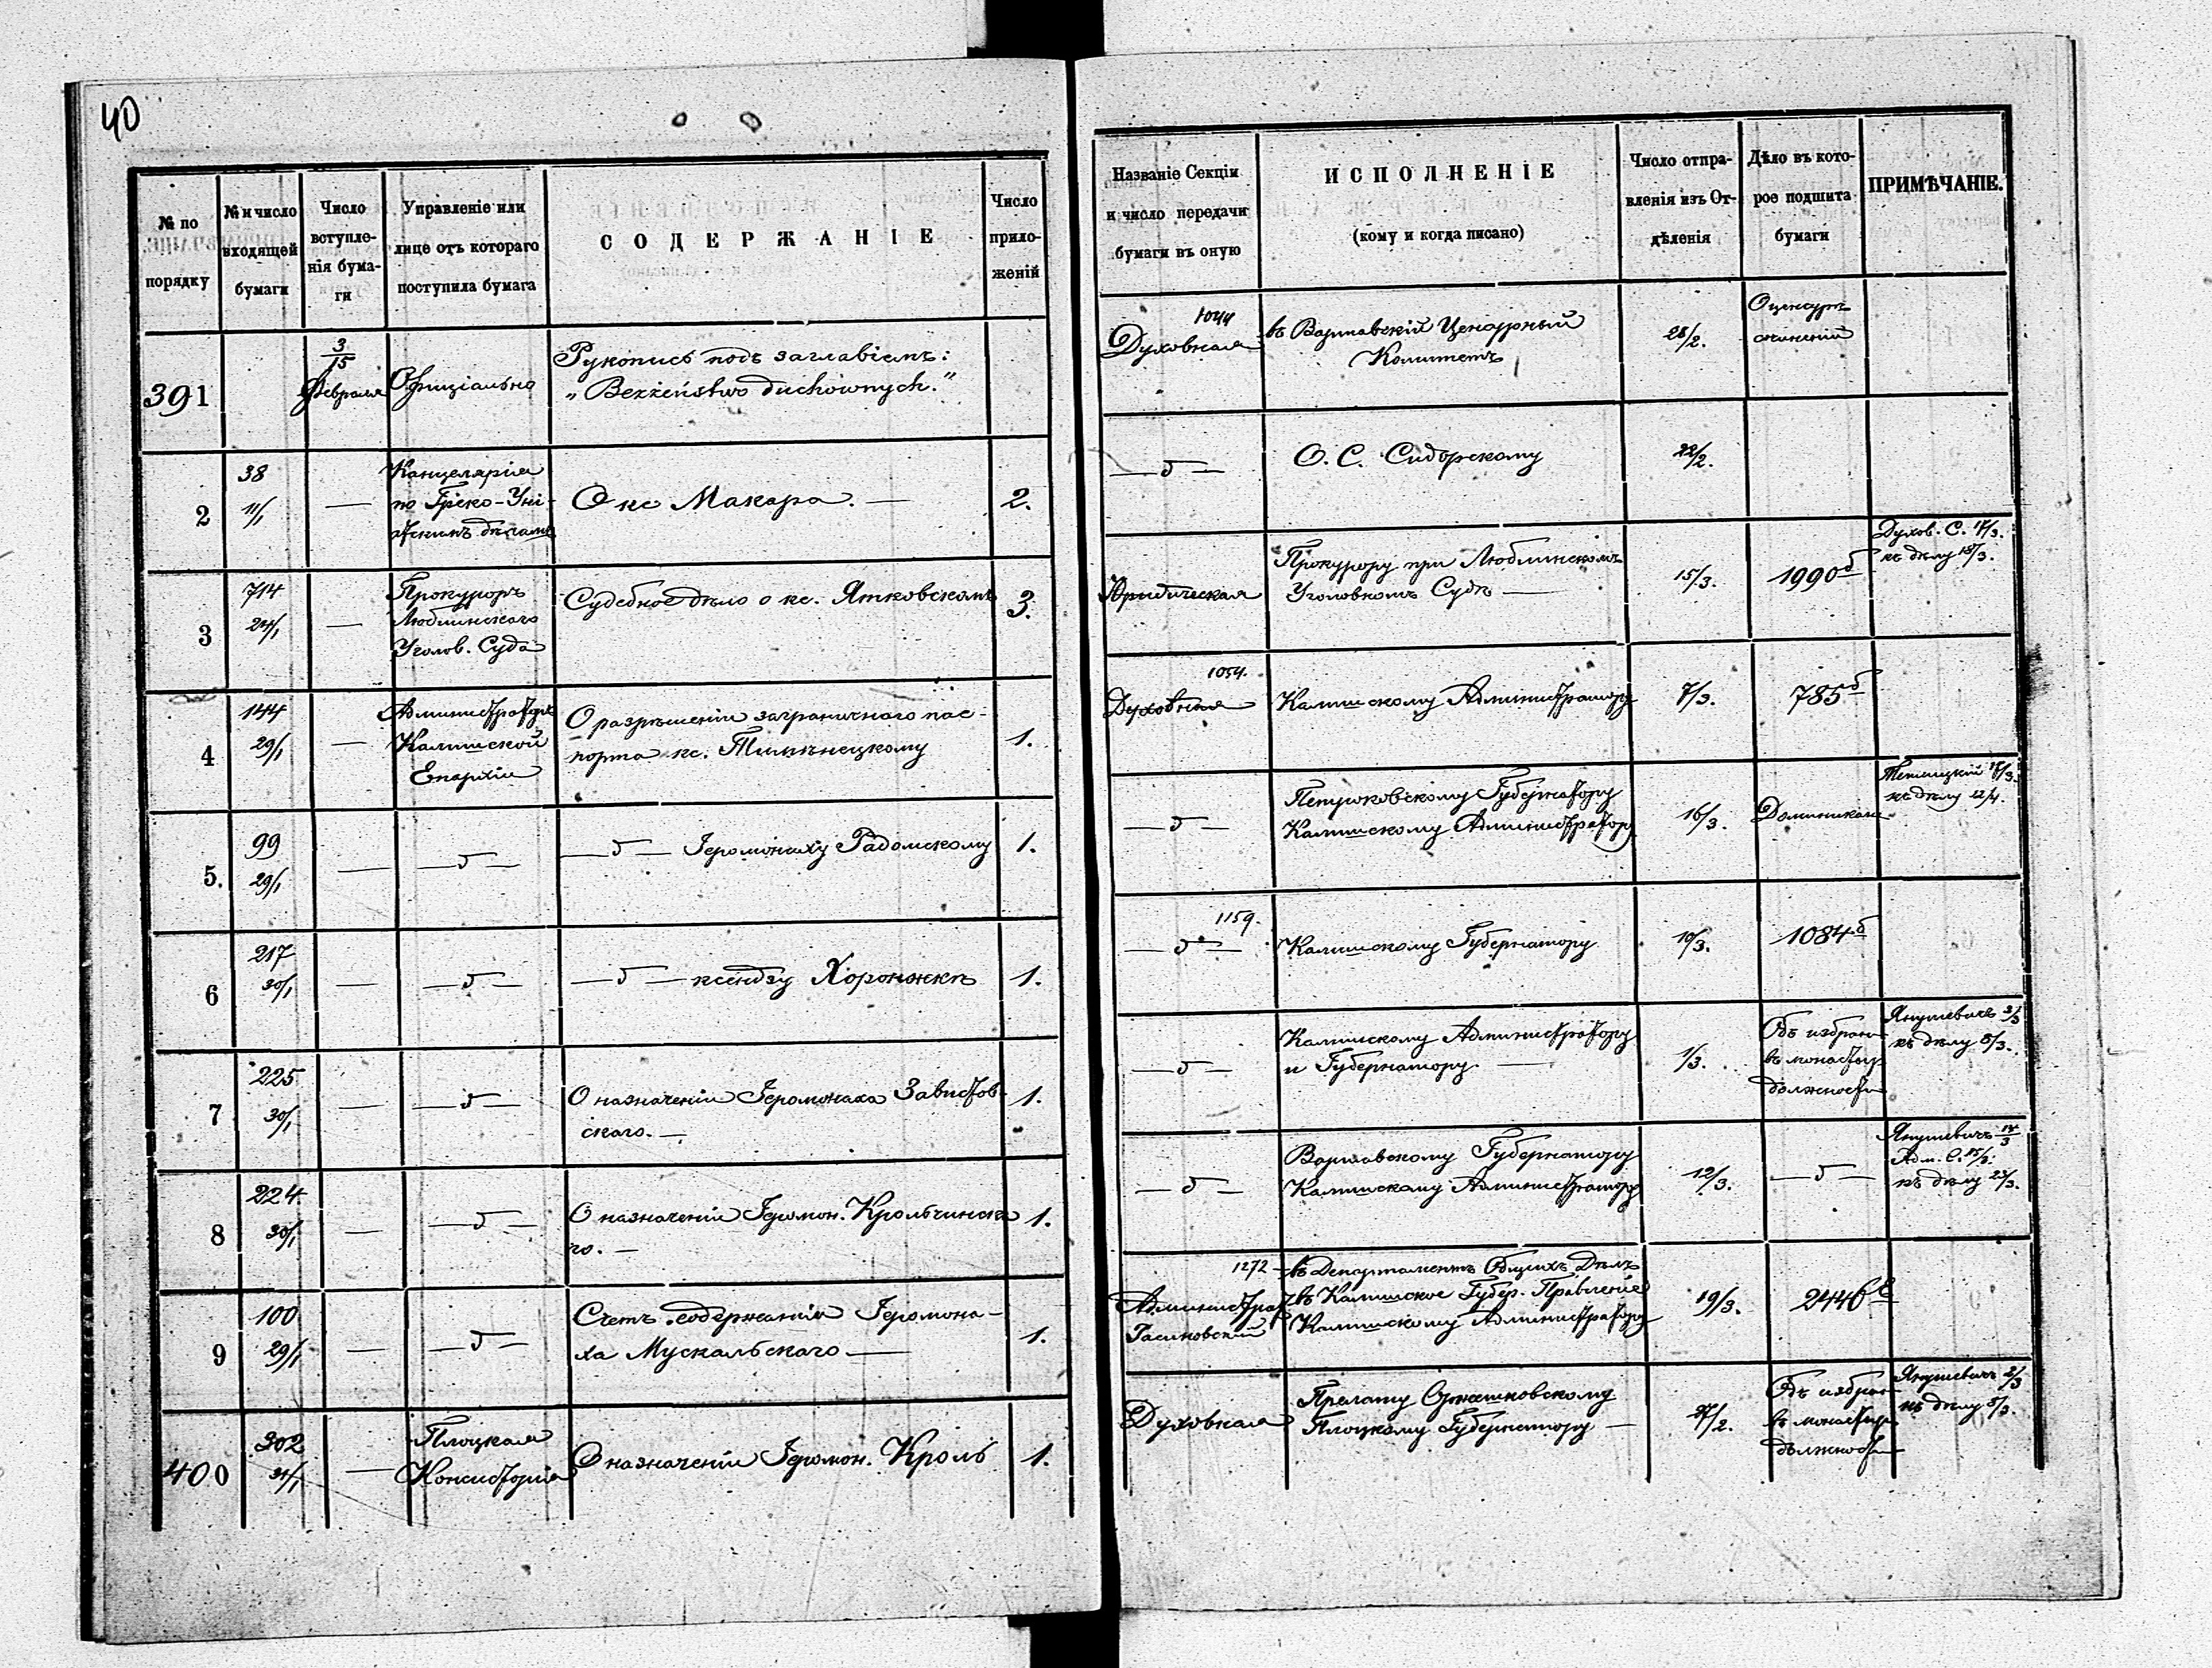 40
№ по
порядку
№ и число
входящей
бумаги
Число
вступле-
нія бума-
ги
Управленіе или
лице отъ котораго
поступила бумага
СОДЕРЖАНІЕ
Число
прило-
женій
Названіе Секціи
и число передачи
бумаги въ оную
ИСПОЛНЕНІЕ
(кому и когда писано)
Число отпра-
вленія изъ От-
дѣленія
Дѣло въ кото-
рое подшита
бумаги
ПРИМѢЧАНІЕ.
391
3/15
Февраля
Офиціально
Рукопись подъ заглавіемъ:
„Bezżeństwo duchownych."
1044
Духовная
въ Варшавскій Ценсурный
Комитетъ
28/2.
О ценсурѣ
сочиненій
2
38
11/1
—
Канцелярія
по Греко-Уні-
атскимъ дѣламъ
О кс Макара. —
2.
— б —
О. С. Сидорскому
22/2.
3
714
24/1
—
Прокуроръ
Люблинскаго
Уголов. Суда
Судебное дѣло о кс. Ятковскомъ
3.
Юридическая
Прокурору при Люблинскомъ
Уголовномъ Судѣ —
15/3.
1990 б
Духов. С. 17/3.
къ дѣлу 18/3.
4
144
29/1
—
Администраторъ
Калишской
Епархіи
О разрѣшеніи заграничнаго пас-
порта кс.
1.
1054.
Духовная
Калишскому Администратору
7/3.
785 б
5.
99
29/1
—
— б —
— б — Іеромонаху Радомскому
1.
— б —
Петроковскому Губернатору
Калишскому Администратору
16/3.
Доминикан
къ дѣлу 12/4.
6
217
30/1
—
— б —
— б — ксендзу Хоронжкѣ
1.
1159.
— б —
Калишскому Губернатору
10/3.
1084 б
7
225
30/1
—
— б —
О назначеніи Іеромонаха Завистов-
скаго. —
1.
— б —
Калишскому Администратору
и Губернатору. —
1/3.
Объ избран
въ монастыр
должности
Янушевичъ 3/3
къ дѣлу 8/3.
8
224
30/1
—
— б —
О назначеніи Іеромон. Крольчинска
го. —
1.
— б —
Варшавскому Губернатору
Калишскому Администратору
12/3.
— б —
Янушевичъ 14/3
Адм. С. 15/3.
къ дѣлу 23/3.
9
100
29/1
—
— б —
Счетъ содержанія Іеромона-
ха Мускальскаго —
1.
1272
Администрат
въ Департаментъ Общихъ Дѣлъ
въ Калишское Губер. Правленіе
Калишскому Администратору
19/3.
2446
400
302
31/1
—
Плоцкая
Консисторія
О назначеніи Іеромон. Кроль
1.
Духовная
Прелату Оржешковскому
Плоцкому Губернатору —
27/2.
Объ избран
въ монастыр
должности
Янушевичъ 2/3
къ дѣлу 5/3.